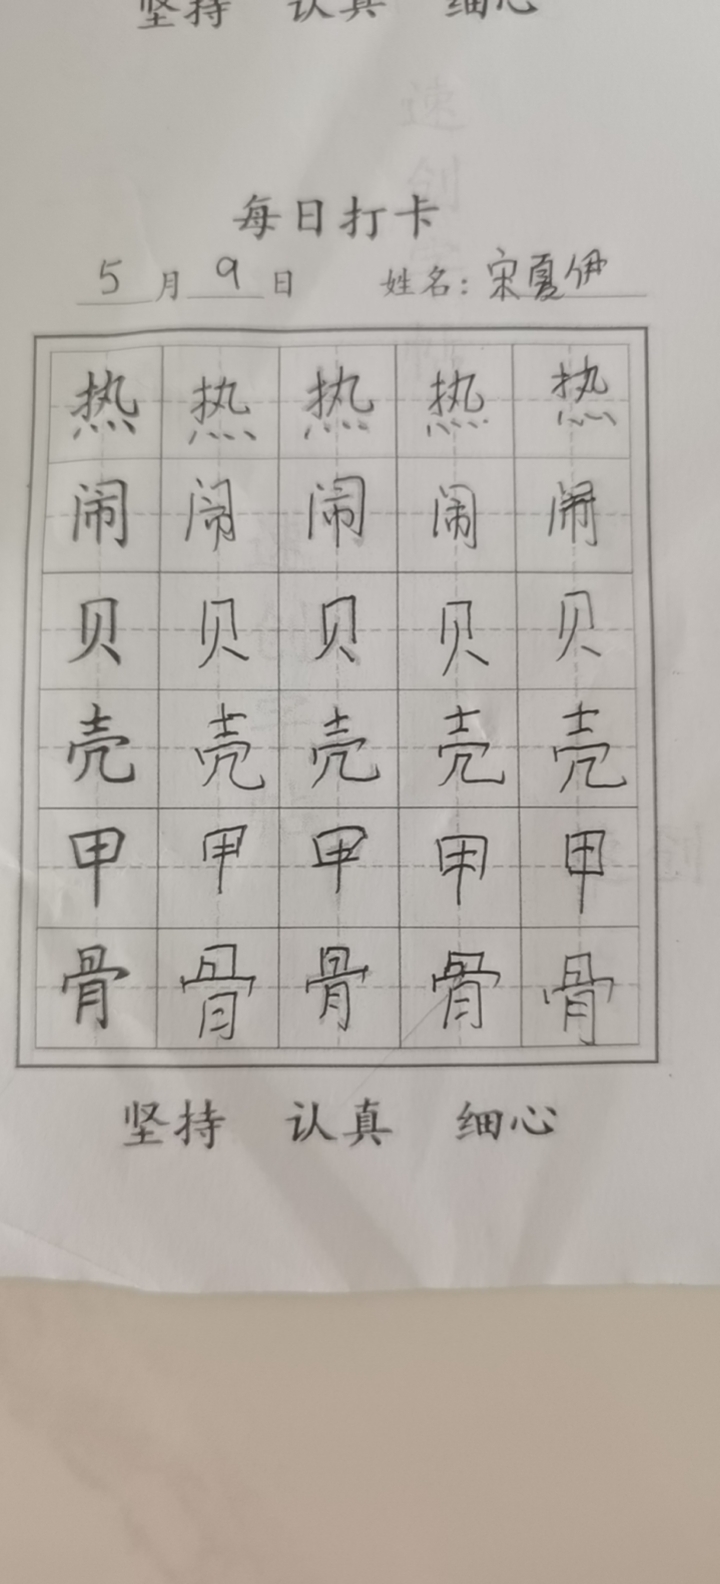 坚持 认真 细心
每日打卡
5月9日 姓名：宋夏伊
热 热 热 热 热
闹 闹 闹 闹 闹
贝 贝 贝 贝 贝
壳 壳 壳 壳 壳
甲 甲 甲 甲 甲
骨 骨 骨 骨 骨
坚持 认真 细心